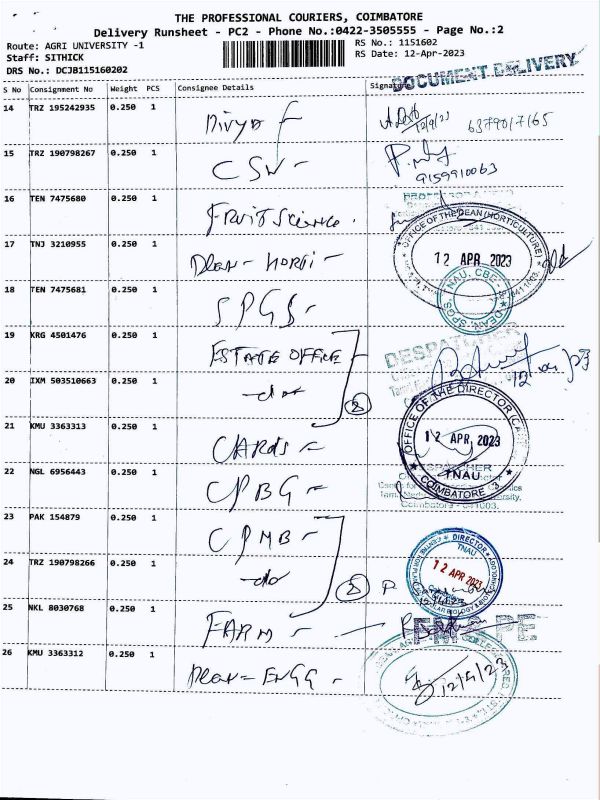 THE PROFESSIONAL COURIERS, COIMBATORE
Delivery Runsheet - PC2 - Phone No.:0422-3505555 - Page No.:2
Route: AGRI UNIVERSITY -1
RS No.: 1151602
Staff: SITHICK
RS Date: 12-Apr-2023
DRS No.: DCJB115160202
DOCUMENT DELIVERY
S No Consignment No Weight PCS Consignee Details Signature
14 TRZ 195242935 0.250 1 Divya
12/4/23 6379017165
15 TRZ 190798267 0.250 1 CSW -
9159910063
16 TEN 7475680 0.250 1 Fruit Science.
17 TNJ 3210955 0.250 1 Dean - HORTI -
OFFICE OF THE DEAN (HORTICULTURE)
12 APR 2023
18 TEN 7475681 0.250 1 SPGS -
DEAN, SPGS, TNAU, CBE - 3
19 KRG 4501476 0.250 1 ESTATE OFFICE
DESPATCHER
20 IXM 503510663 0.250 1 -do-
2
21 KMU 3363313 0.250 1 CARDS -
OFFICE OF THE DIRECTOR
12 APR 2023
TNAU
COIMBATORE - 3
22 NGL 6956443 0.250 1 CPBG -
DESPATCHER
Coimbatore - 641003.
23 PAK 154879 0.250 1 CPMB -
DIRECTOR
TNAU
12 APR 2023
24 TRZ 190798266 0.250 1 -do-
2 P.
25 NKL 8030768 0.250 1 FARM -
26 KMU 3363312 0.250 1 Dean - ENGG -
12/4/23